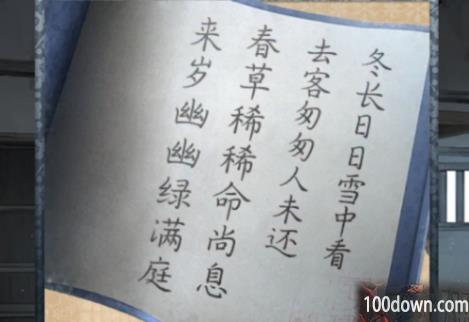 冬长日日雪中看
去客匆匆人未还
春草稀稀命尚息
来岁幽幽绿满庭
100down.com